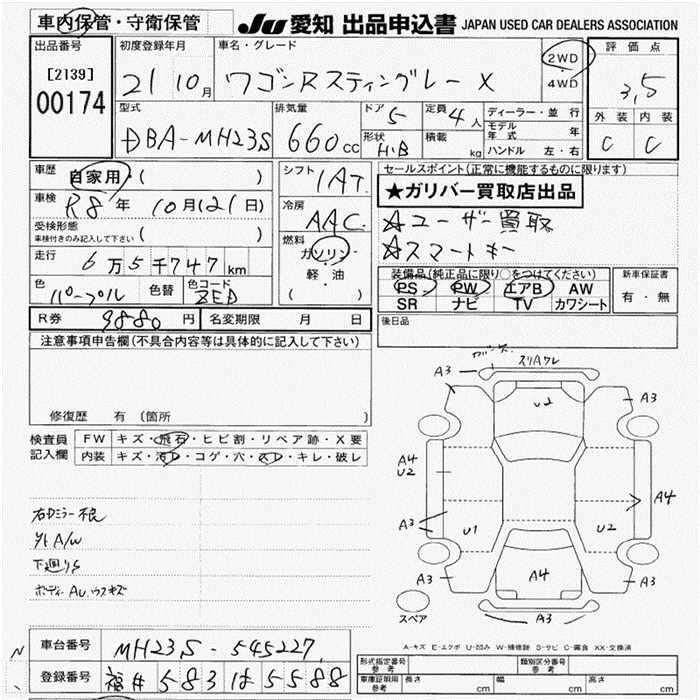 車内保管・守衛保管 JU 愛知 出品申込書 JAPAN USED CAR DEALERS ASSOCIATION
出品番号 初度登録年月 車名・グレード 2WD・4WD 評価点
[2139] 21 10月 ワゴンRスティングレー X 3,5
00174
型式 排気量 ドア 5 定員 4人 ディーラー・並行 外装 内装
DBA-MH23S 660cc 形状 H・B 積載 kg モデル年式 年 C C
ハンドル 左・右
車歴 自家用・( ) シフト 1AT セールスポイント(正常に機能するものに限ります)
車検 R8年 10月(21日) 冷房 AAC ★ガリバー買取店出品
受検形態 ( ) ☆ユーザー買取
車検付きのみ記入して下さい 燃料 ☆スマートキー
走行 6万5千747km ガソリン・軽・油 ( )
色 パープル 色替 色コード ZED 装備品(純正品に限り○をつけてください) 新車保証書
PS PW エアB AW 有・無
SR ナビ TV カワシート
R券 9880円 名変期限 月 日 後日品
注意事項申告欄(不具合内容等は具体的に記入して下さい)
修復歴 有 (箇所
検査員記入欄 FW キズ・飛石・ヒビ割・リペア跡・X要
内装 キズ・汚レ・コゲ・穴・スレ・キレ・破レ
右ドミラー不良
外A/W
下廻りS
ボディーAU、ウスキズ
ガリキズ スリAワレ
A3 U2 A3
A4 U2 A4
A3 U1 U2
A3 A4 A3
スペア A3
A-キズ E-エクボ U-凹み W-補修跡 S-サビ C-腐食 XX-交換済
車台番号 MH23S-545227
登録番号 福井 583 は 5588
形式指定番号 参考 類別区分番号 参考
車庫証明用 参考 長さ cm 幅 cm 高さ cm